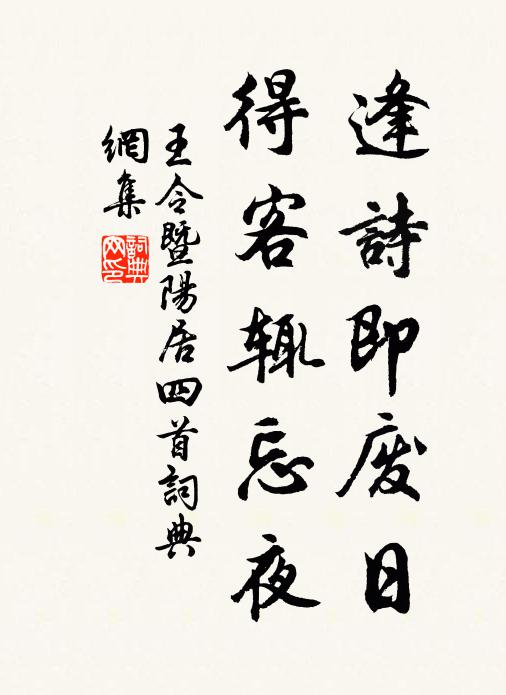 逢詩即废日
得客辄忘夜
王令暨陽居四首詞典
網集
詞典网印